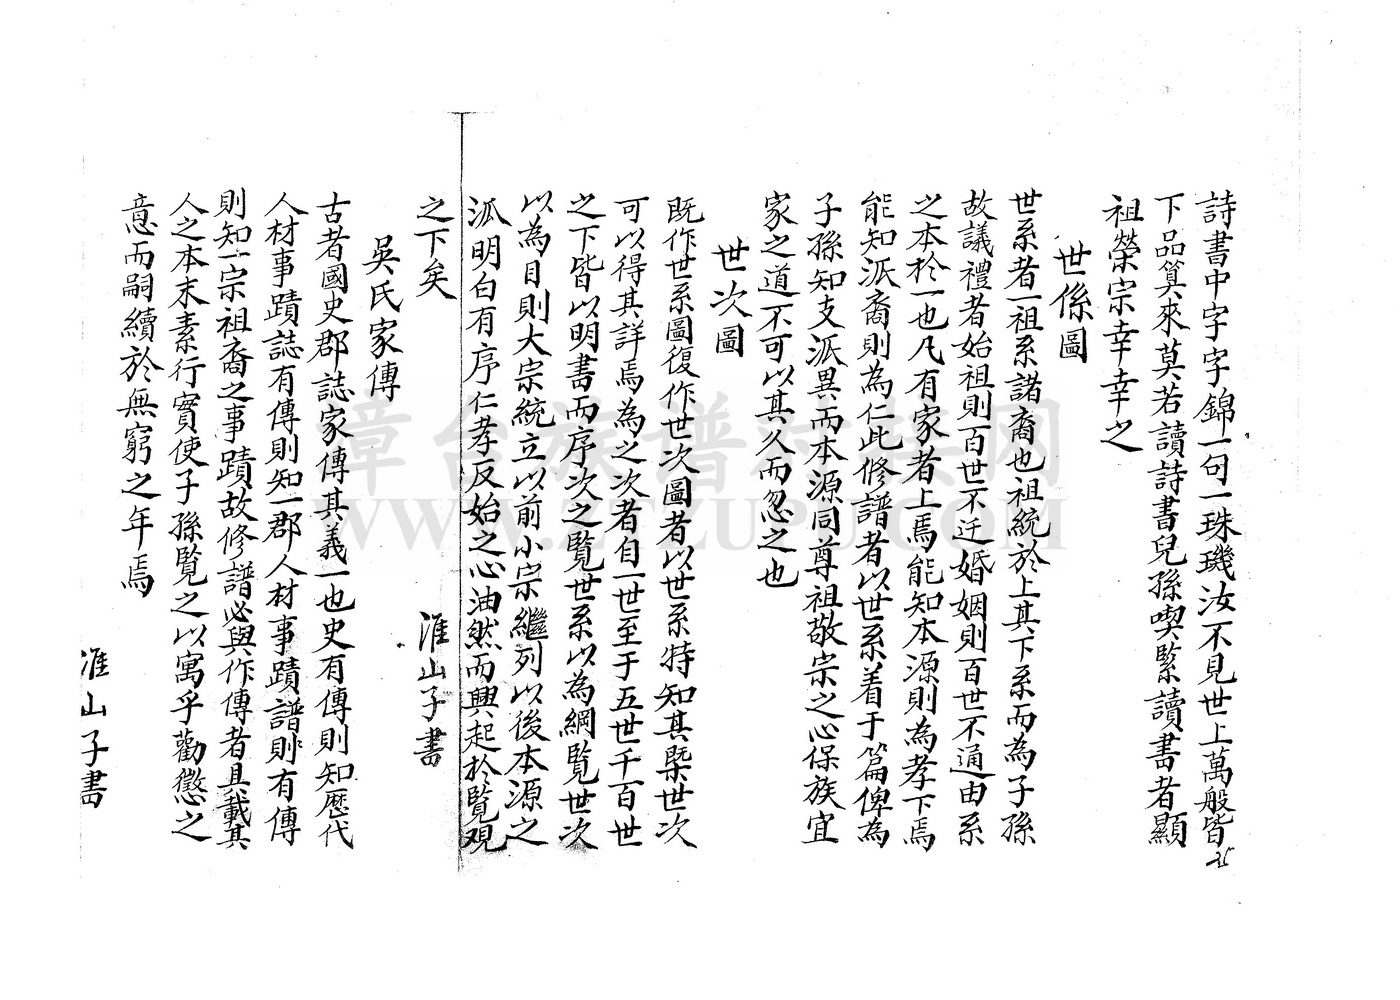 詩書中字字錦一句一珠璣汝不見世上萬般皆
下品算來莫若讀詩書兒孫喫緊讀書者顯
祖榮宗幸幸之
世係圖
世系者一祖系諸裔也祖統於上其下系而為子孫
故議禮者始祖則百世不迁婚姻則百世不通由系
之本於一也凡有家者上焉能知本源則為孝下焉
能知派裔則為仁此修譜者以世系着于篇俾為
子孫知支派異而本源同尊祖敬宗之心保族宜
家之道不可以其久而忽之也
世次圖
既作世系圖復作世次圖者以世系特知其槩世次
可以得其詳焉為之次者自一世至于五世千百世
之下皆以明書而序次之覽世系以為綱覽世次
以為目則大宗統立以前小宗繼列以後本源之
派明白有序仁孝反始之心油然而興起於覽观
之下矣
淮山子書
吳氏家傳
古者國史郡誌家傳其義一也史有傳則知歷代
人材事蹟誌有傳則知一郡人材事蹟譜則有傳
則知一宗祖裔之事蹟故修譜必與作傳者具載其
人之本末素行實使子孫覽之以寓乎勸懲之
意而嗣續於無窮之年焉
淮山子書
章台族谱对接网
WWW.ZTZUPU.COM